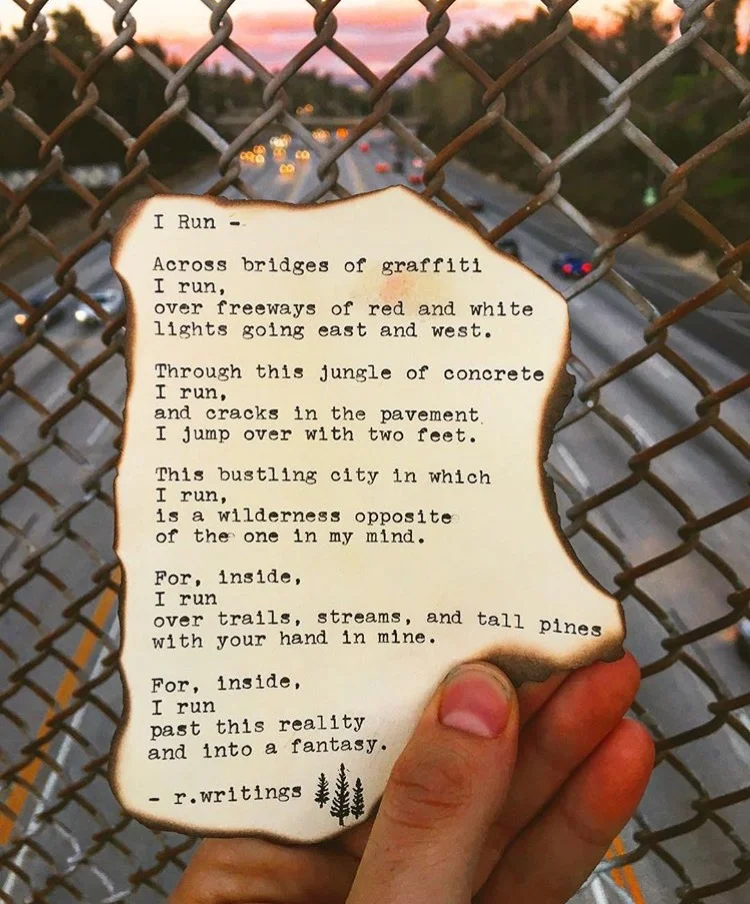 I Run -
Across bridges of graffiti
I run,
over freeways of red and white
lights going east and west.
Through this jungle of concrete
I run,
and cracks in the pavement
I jump over with two feet.
This bustling city in which
I run,
is a wilderness opposite
of the one in my mind.
For, inside,
I run
over trails, streams, and tall pines
with your hand in mine.
For, inside,
I run
past this reality
and into a fantasy.
- r.writings